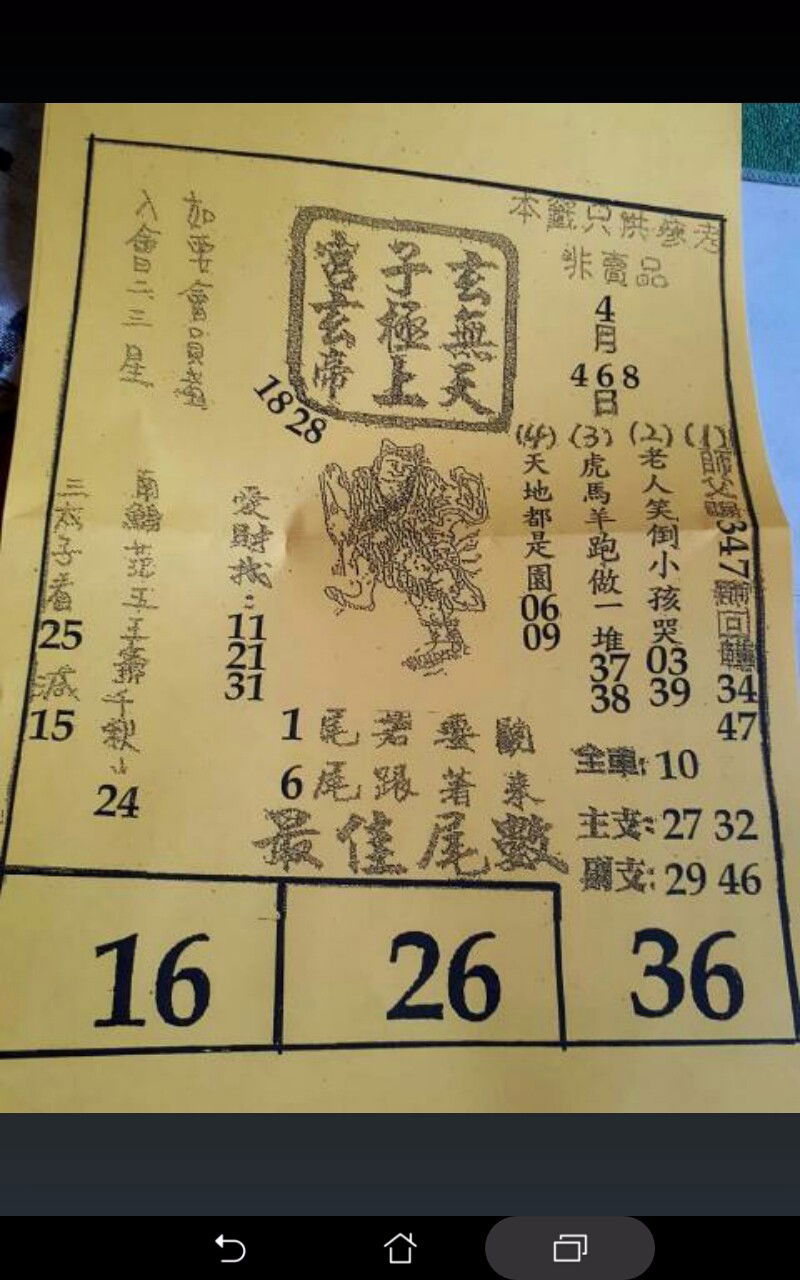 本籤只供參考
非賣品
4
月
4 6 8
日
玄無天
子極上
宮玄帝
18 28
加要會員
入會日二三星
(1)
347
34
47
(2)
老人笑倒小孩哭
03
39
(3)
虎馬羊跑做一堆
37
38
(4)
天地都是園
06
09
愛財找:
11
21
31
南鯤 五王爺千秋
24
三太子看
25
15
1尾若要
6尾跟著來
全車: 10
主支: 27 32
副支: 29 46
最佳尾數
16
26
36